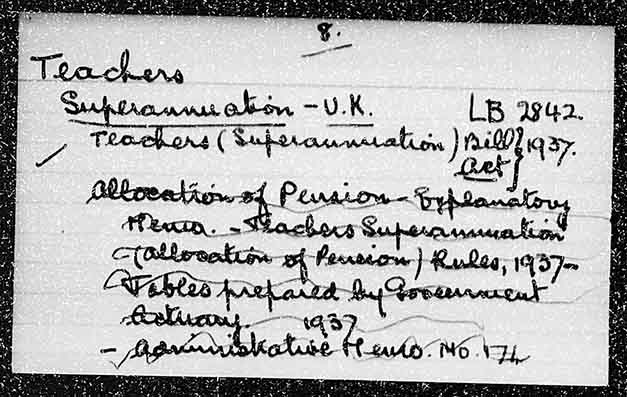 8.
Teachers
Superannuation - U.K. LB 2842.
Teachers (Superannuation) Bill } 1937.
Act }
Allocation of Pension - Explanatory
Memo. - Teachers Superannuation
(Allocation of Pension) Rules, 1937 -
Tables prepared by Government
Actuary. 1937
- Administrative Memo. No. 174